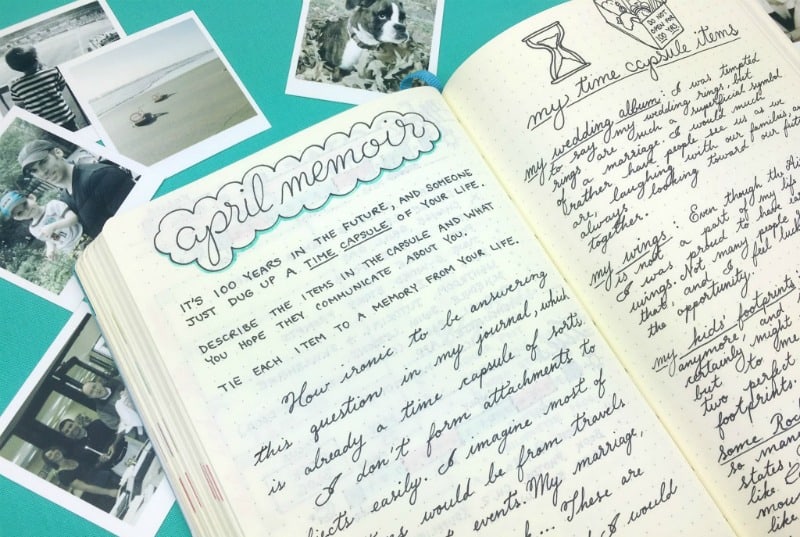 april memoir
IT'S 100 YEARS IN THE FUTURE, AND SOMEONE
JUST DUG UP A TIME CAPSULE OF YOUR LIFE.
DESCRIBE THE ITEMS IN THE CAPSULE AND WHAT
YOU HOPE THEY COMMUNICATE ABOUT YOU.
TIE EACH ITEM TO A MEMORY FROM YOUR LIFE.
How ironic to be answering
this question in my journal, which
is already a time capsule of sorts.
I don't form attachments to
jects easily. I imagine most of
would be from travels
events. My marriage,
... These are
I would
DO NOT
OPEN FOR
100 YRS.
my time capsule items
my wedding album: I was tempted
to say my wedding rings, but
rings are such a superficial symbol
of a marriage. I would much
rather have people see us as we
are, laughing with our families and
always looking toward our
together.
my wings: Even though the
is not a part of my life
I was proud to have
wings. Not many people
that, and I feel
the opportunity.
my kids' footprints:
anymore, and
certainly might
but to me
two perfect
footprints.
Some
so man
states
like
mou
like